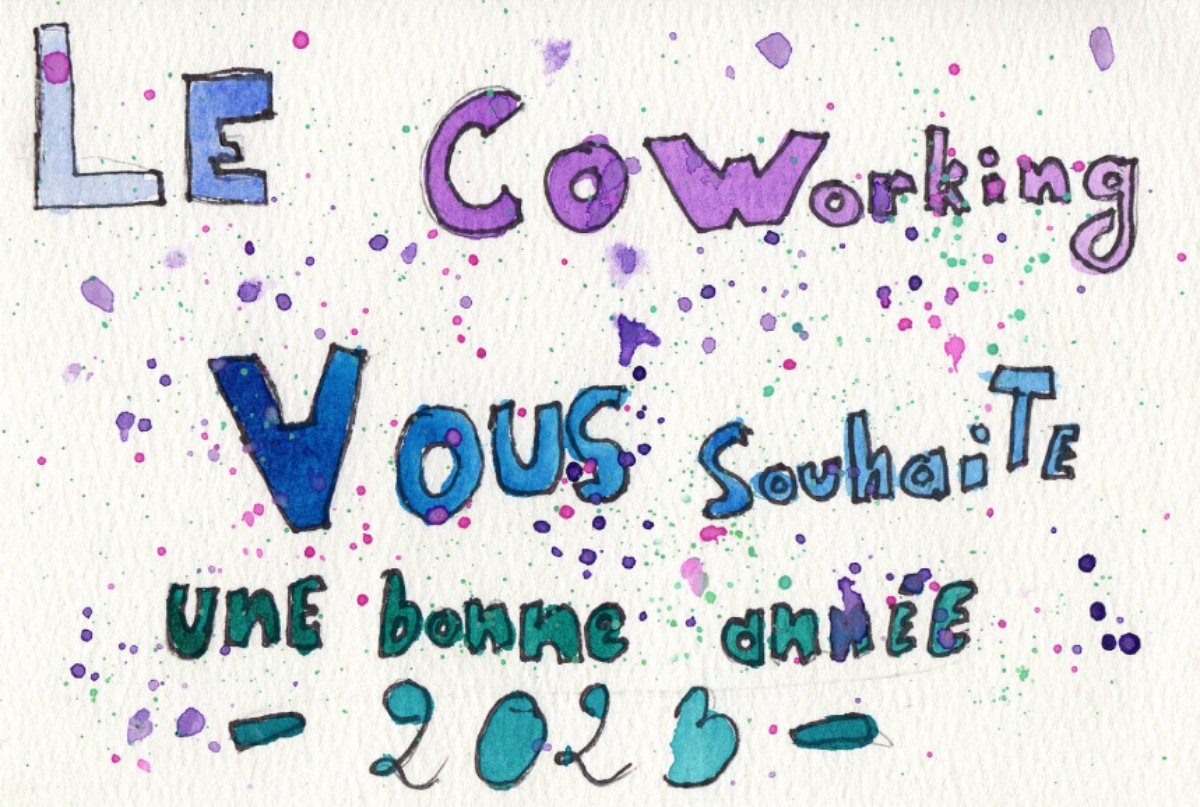 LE CoWorking
Vous SouhaiTE
UNE bonne annÉE
- 2023 -